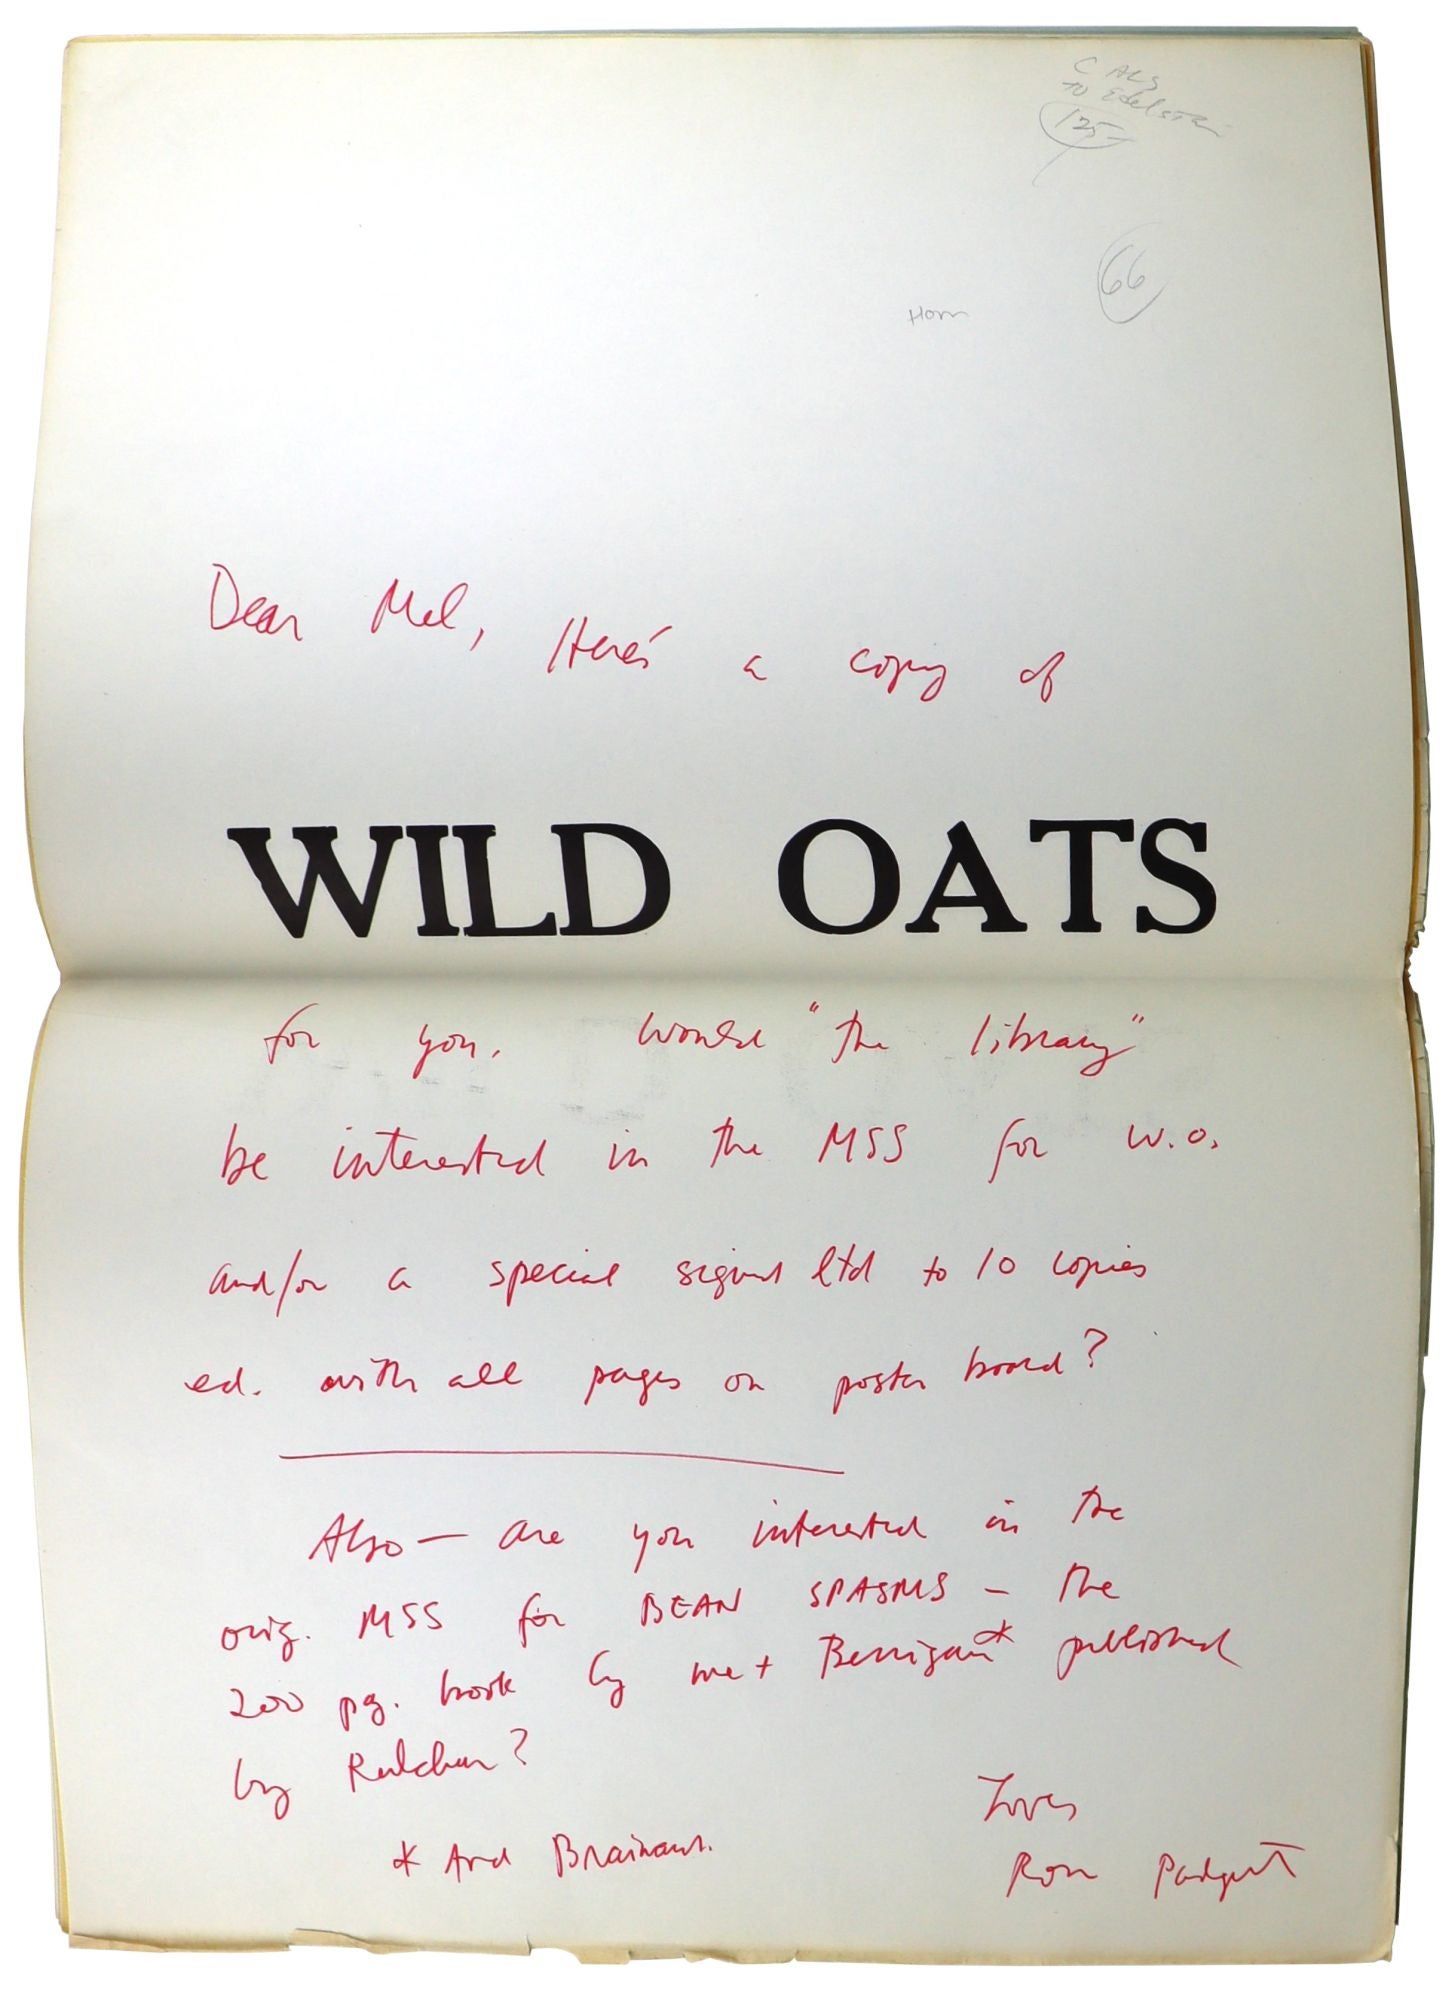 C ALS
to Edelstein
125-
66
Horn
Dear Mel, Here's a copy of
WILD OATS
for you. Would "the library"
be interested in the MSS for W.O.
and/or a special signed ltd to 10 copies
ed. with all pages on poster board?
Also — are you interested in the
orig. MSS for BEAN SPASMS — the
200 pg. book by me + Berrigan* published
by Kulchur?
* And Brainard.
Loves
Ron Padgett